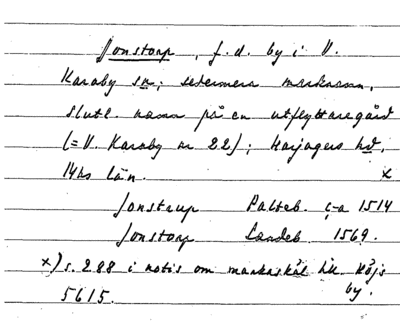 Jonstorp, f.d. by i V.
Karaby sn; sedermera marknamn,
slutl. namn på en utflyttaregård
(= V. Karaby nr 22); Harjagers hd,
14hs län. x
Jonstrup Palteb. c-a 1514
Jonstorp Landeb. 1569.
x) s. 288 i notis om markaskäl till Höjs
by.
5615.